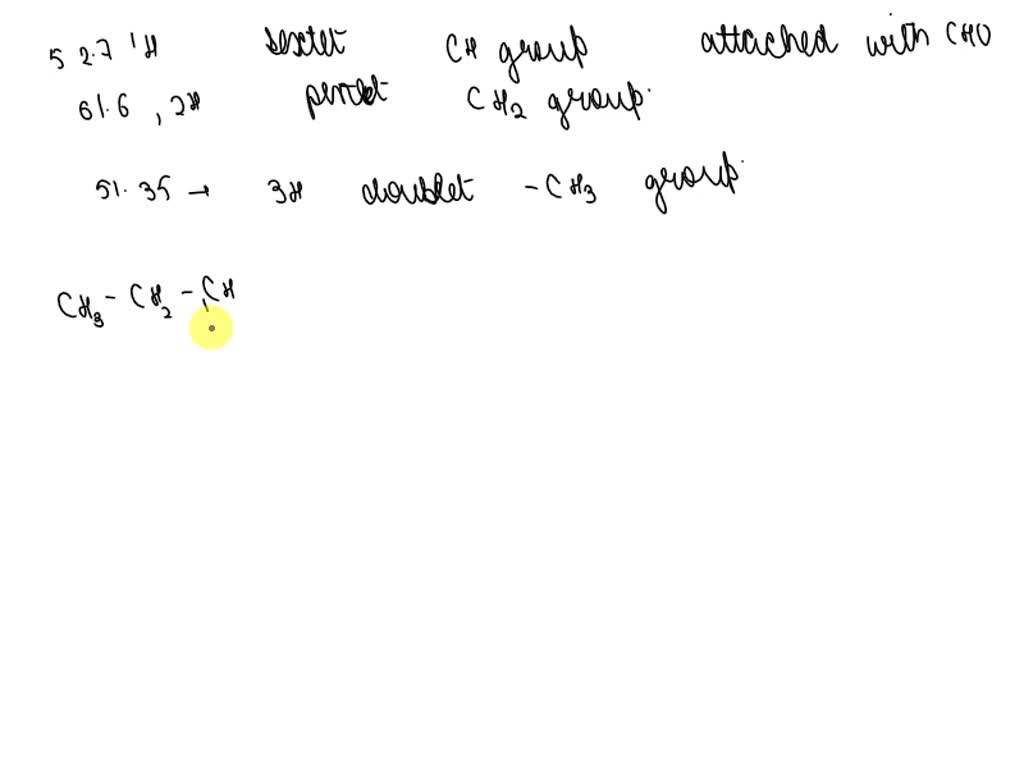 δ 2.7 1H sextet CH group attached with CHO
δ1.6 , 2H pentet CH2 group.
δ1.35 → 3H doublet -CH3 group.
CH3 - CH2 - CH